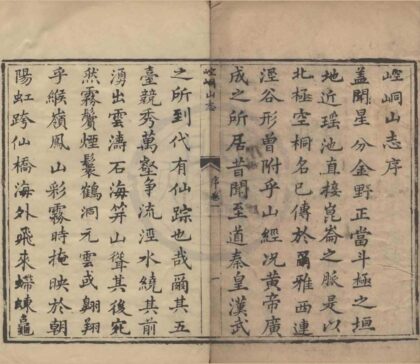 崆峒山志序
蓋聞星分金野正當斗極之垣
地近瑤池直接崑崙之脈是以
北極空桐名已傳於爾雅西連
涇谷形曾附乎山經况黃帝廣
成之所居昔聞至道秦皇漢武
崆峒山志
序
一
之所到代有仙踪也哉爾其五
臺競秀萬壑爭流涇水繞其前
湧出雲濤石海笄山聳其後宛
然霧鬢煙鬟鶴洞元雲或翺翔
乎緱嶺鳳山彩霧時掩映於朝
陽虹跨仙橋海外飛來蝀龜